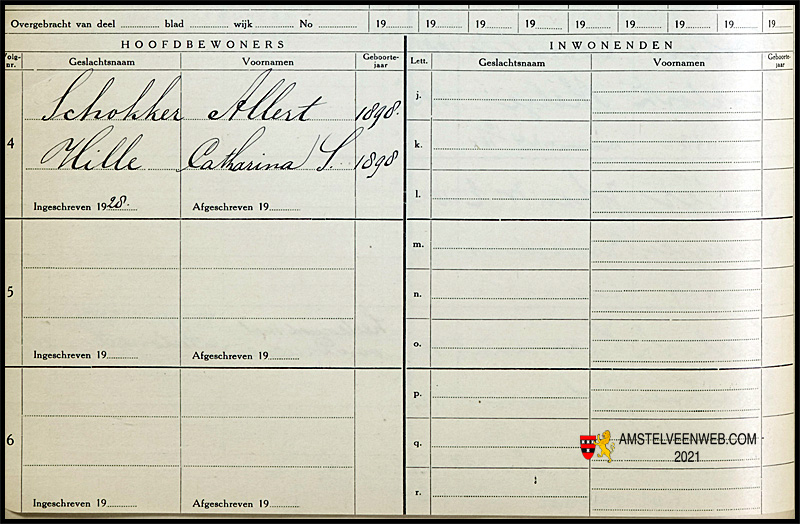 Overgebracht van deel ........ blad ........ wijk ........ No ........ 19.... 19.... 19.... 19.... 19.... 19.... 19.... 19.... 19....
HOOFDBEWONERS INWONENDEN
Volg-nr. Geslachtsnaam Voornamen Geboorte-jaar Lett. Geslachtsnaam Voornamen Geboorte-jaar
Schokker Allert 1898. j.
4 Hille Catharina S. 1898 k.
Ingeschreven 1928. Afgeschreven 19........ l.
m.
5 n.
o.
Ingeschreven 19........ Afgeschreven 19........
p.
6 q.
AMSTELVEENWEB.COM
2021
r.
Ingeschreven 19........ Afgeschreven 19........